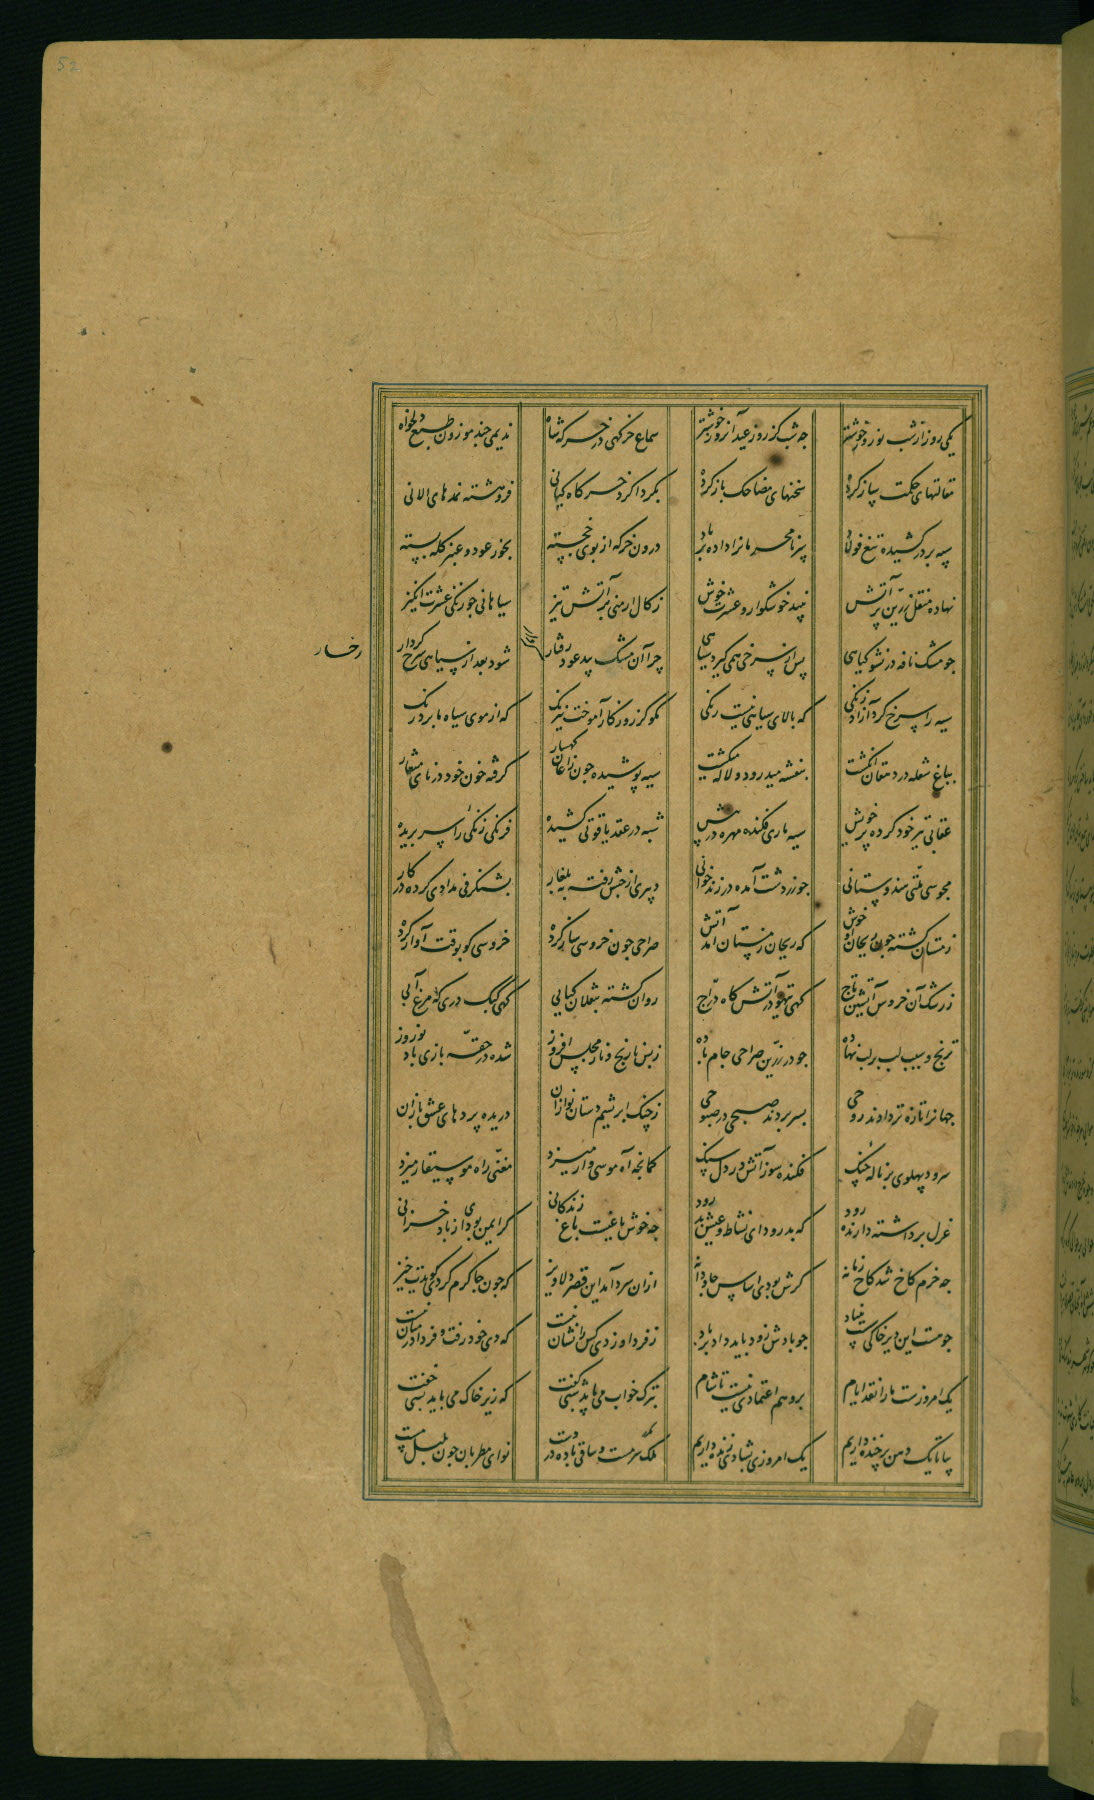 52
یکی روز از شب نوروز خوشتر جه شب کز روز عید آنروز خوشتر سماع خرکهی در خرکه شاه ندیمی جند موزون طبع و دلخواه
مقالتهای حکمت ساز کرده سخنهای مضاحک باز کرده بکردا کرد خرکاه کیانی فروهشته نمدهای الانی
سپه بر در کشیده تیغ فولاد سر نامحرمانرا داده بر باد درون خرکه از بوی خجسته بخور عود و عنبر کله بسته
نهاده منقل زرین پر آتش نبید خوشکوار و عشرت خوش زکال ارمنی بر آتش تیز سیاهانی جو زنکی عشرت انکیز
جو مشک نافه در نشو کیاهی پس از سرخی همی کیرد سیاهی چرا آن مشک بید عود رفتار شود بعد از سیاهی سرخ کردار
رخسار
سیه را سرخ کرد آزاد زنکی که بالای سیاهی نیست رنکی مکر کز روزکار آموخت نیرنک که از موی سیاه ما برد رنک
بباغ شعله در دهقان انکشت بنفشه میدرود و لاله میکشت سیه پوشیده جون زاغان کهسار کرفته خون خود در نای و منقار
عقابی تیز خود کرده پر خویش سیه ماری فکنده مهره در پیش شبه در عقد یاقوتی کشیده فرنکی زنکی را سر بریده
مجوسی ملتی هندوستانی جو زردشت آمده در زند خوانی دبیری از حبش رفته به بلغار بشنکرفی مدادی کرده در کار
زمستان کشته جون ریحان ازو خوش که ریحان زمستان آمد آتش صراحی جون خروسی ساز کرده خروسی کو بوقت آواز کرده
ز رشک آن خروس آتشین تاج کهی تیهو در آتش کاه دراج روان کشته بنقلان کبابی کهی کبک دری که مرغ آبی
ترنج و سیب لب بر لب نهاده جو در زرین صراحی جام باده ز بس نارنج و نار مجلس افروز شده در حقه بازی باد نوروز
جهانرا تازه تر دادند روحی بسر بردند صبحی در صبوحی ز چنک ابریشم دستان نوازان دریده پردهای عشق بازان
سرود پهلوی بر ناله چنک فکنده سوز آتش در دل سنک کمانجه آه موسی وار میزد مغنی راه موسیقار میزد
غزل برداشته دارنده رود که بدرود ای نشاط و عیش بدرود چه خوش باغیست باغ زندکانی کر ایمن بودی از باد خزانی
جه خرم کاخ شد کاخ زمانه کرش بودی اساس جاودانه از ان سرد آمد این قصر دلاویز که جون جا کرم کردی کویدت خیز
جو هست این دیر خاکی سست بنیاد جو بادش زود باید داد بر باد ز فردا و ز دی کس را نشان نیست که دی خود رفت و فردا در میان نیست
یک امروزست ما را نقد ایام برو هم اعتمادی نیست تا شام بترک خواب می باید شبی کفت که زیر خاک می باید بسی خفت
بیا تا یک دهن پر خنده داریم یک امروزی بشادی زنده داریم ملک سرمست و ساقی باده در دست نوای مطربان جون بلبل مست